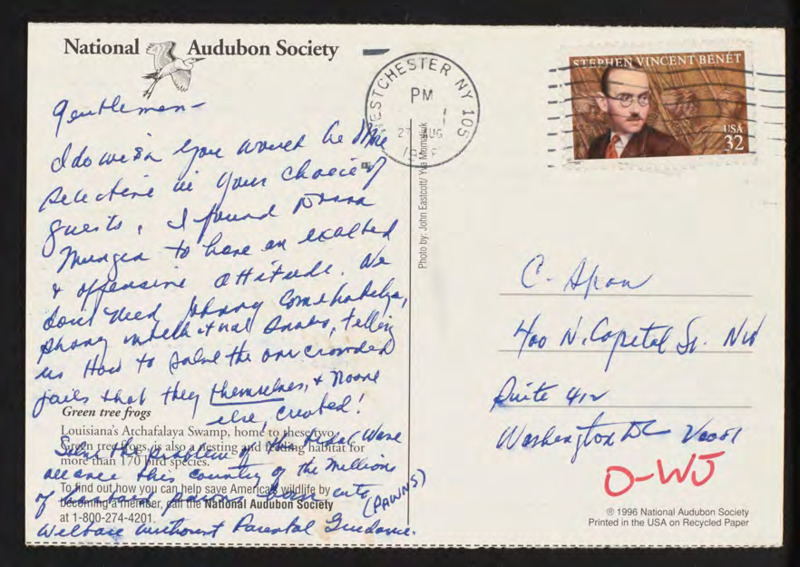 National Audubon Society
Gentlemen-
I do wish you would be more
selective in your choice of
guests, I found Donna
to have an exalted
& offensive attitude. We
don't need Johnny
phony intellectual snobs, telling
us How to solve the overcrowded
jails that they themselves, & Noone
else, created!
Green tree frogs
Louisiana's Atchafalaya Swamp, home to these two
Green tree frogs, is also a nesting and feeding habitat for
more than 170 bird species.
To find out how you can help save America's wildlife by
becoming a member, call the National Audubon Society
at 1-800-274-4201.
Solve the problem of the tidal wave
this country of the Millions
of born into (PAWNS)
Welfare without Parental Guidance.
Photo by: John Eastcott/Yva Momatiuk
WESTCHESTER NY 105
PM
27 AUG
STEPHEN VINCENT BENÉT
USA
32
C-Span
400 N. Capitol St. NW
Suite 412
Washington DC 20001
D-WJ
® 1996 National Audubon Society
Printed in the USA on Recycled Paper